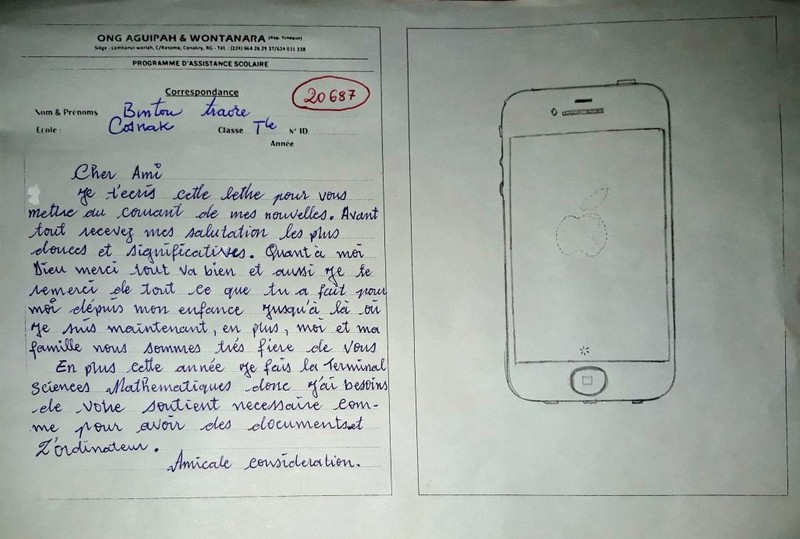 ONG AGUIPAH & WONTANARA (Rép. Tchèque)
Siège : Lambanyi-wariah, C/Ratoma, Conakry, RG - Tél. : (224) 664 26 29 37/624 031 338
PROGRAMME D'ASSISTANCE SCOLAIRE
Correspondance
20687
Nom & Prénoms Bintou traore
Ecole : Cosnak Classe Tle N° ID
Année
Cher Ami
Je t'ecris cette lettre pour vous
mettre au courant de mes nouvelles. Avant
tout recevez mes salutation les plus
douces et significatives. Quant à moi
Dieu merci tout va bien et aussi Je te
remerci de tout ce que tu a fait pour
moi dépuis mon enfance Jusqu'à là où
Je suis maintenant, en plus, moi et ma
famille nous sommes trés fiere de vous
En plus cette année Je fais la Terminal
Sciences Mathematiques donc J'ai besoins
de votre soutient necessaire com-
me pour avoir des documents et
L'ordinateur.
Amicale consideration.